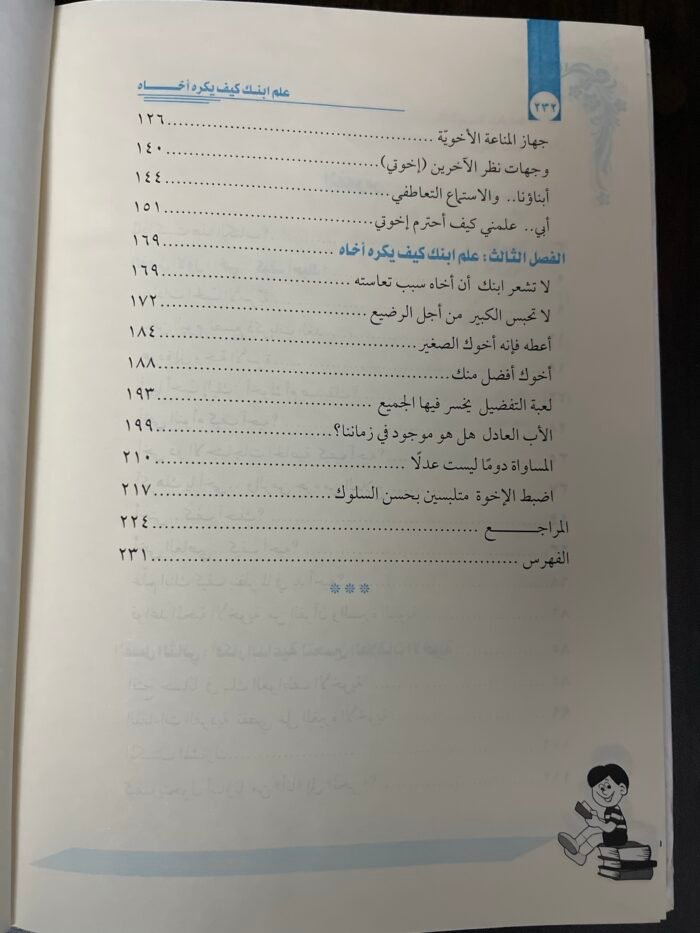 علم ابنك كيف يكره أخاه
٢٣٢
جهاز المناعة الأخويّة ........ ١٢٦
وجهات نظر الآخرين (إخوتي) ........ ١٤٠
أبناؤنا.. والاستماع التعاطفي ........ ١٤٤
أبي.. علمني كيف أحترم إخوتي ........ ١٥١
الفصل الثالث: علم ابنك كيف يكره أخاه ........ ١٦٩
لا تشعر ابنك أن أخاه سبب تعاسته ........ ١٦٩
لا تحبس الكبير من أجل الرضيع ........ ١٧٢
أعطه فإنه أخوك الصغير ........ ١٨٤
أخوك أفضل منك ........ ١٨٨
لعبة التفضيل يخسر فيها الجميع ........ ١٩٣
الأب العادل هل هو موجود في زماننا؟ ........ ١٩٩
المساواة دومًا ليست عدلًا ........ ٢١٠
اضبط الإخوة متلبسين بحسن السلوك ........ ٢١٧
المراجـــع ........ ٢٢٤
الفهرس ........ ٢٣١
***